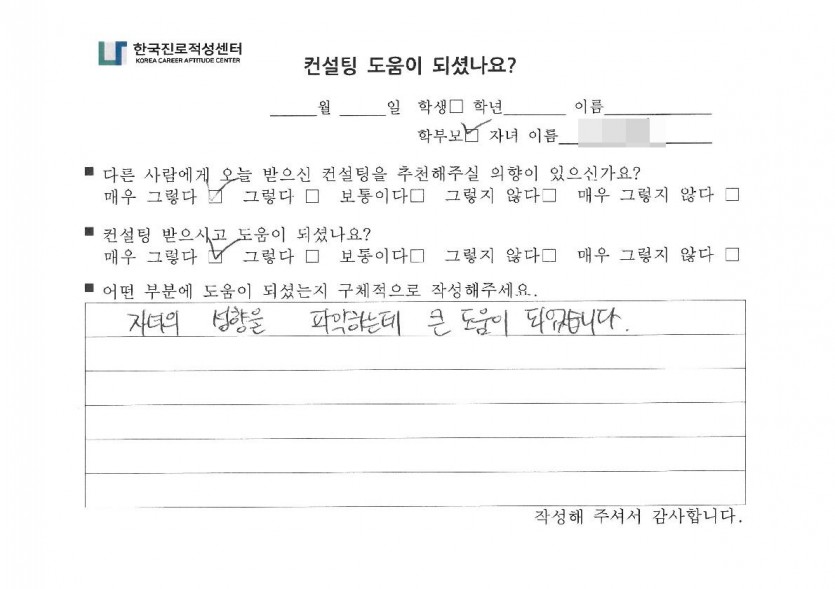 한국진로적성센터
KOREA CAREER APTITUDE CENTER
컨설팅 도움이 되셨나요?
____월 ____일 학생□ 학년______ 이름__________
학부모☑ 자녀 이름__________
■ 다른 사람에게 오늘 받으신 컨설팅을 추천해주실 의향이 있으신가요?
매우 그렇다 ☑ 그렇다 □ 보통이다□ 그렇지 않다□ 매우 그렇지 않다 □
■ 컨설팅 받으시고 도움이 되셨나요?
매우 그렇다 ☑ 그렇다 □ 보통이다□ 그렇지 않다□ 매우 그렇지 않다 □
■ 어떤 부분에 도움이 되셨는지 구체적으로 작성해주세요.
자녀의 성향을 파악하는데 큰 도움이 되었습니다.
작성해 주셔서 감사합니다.